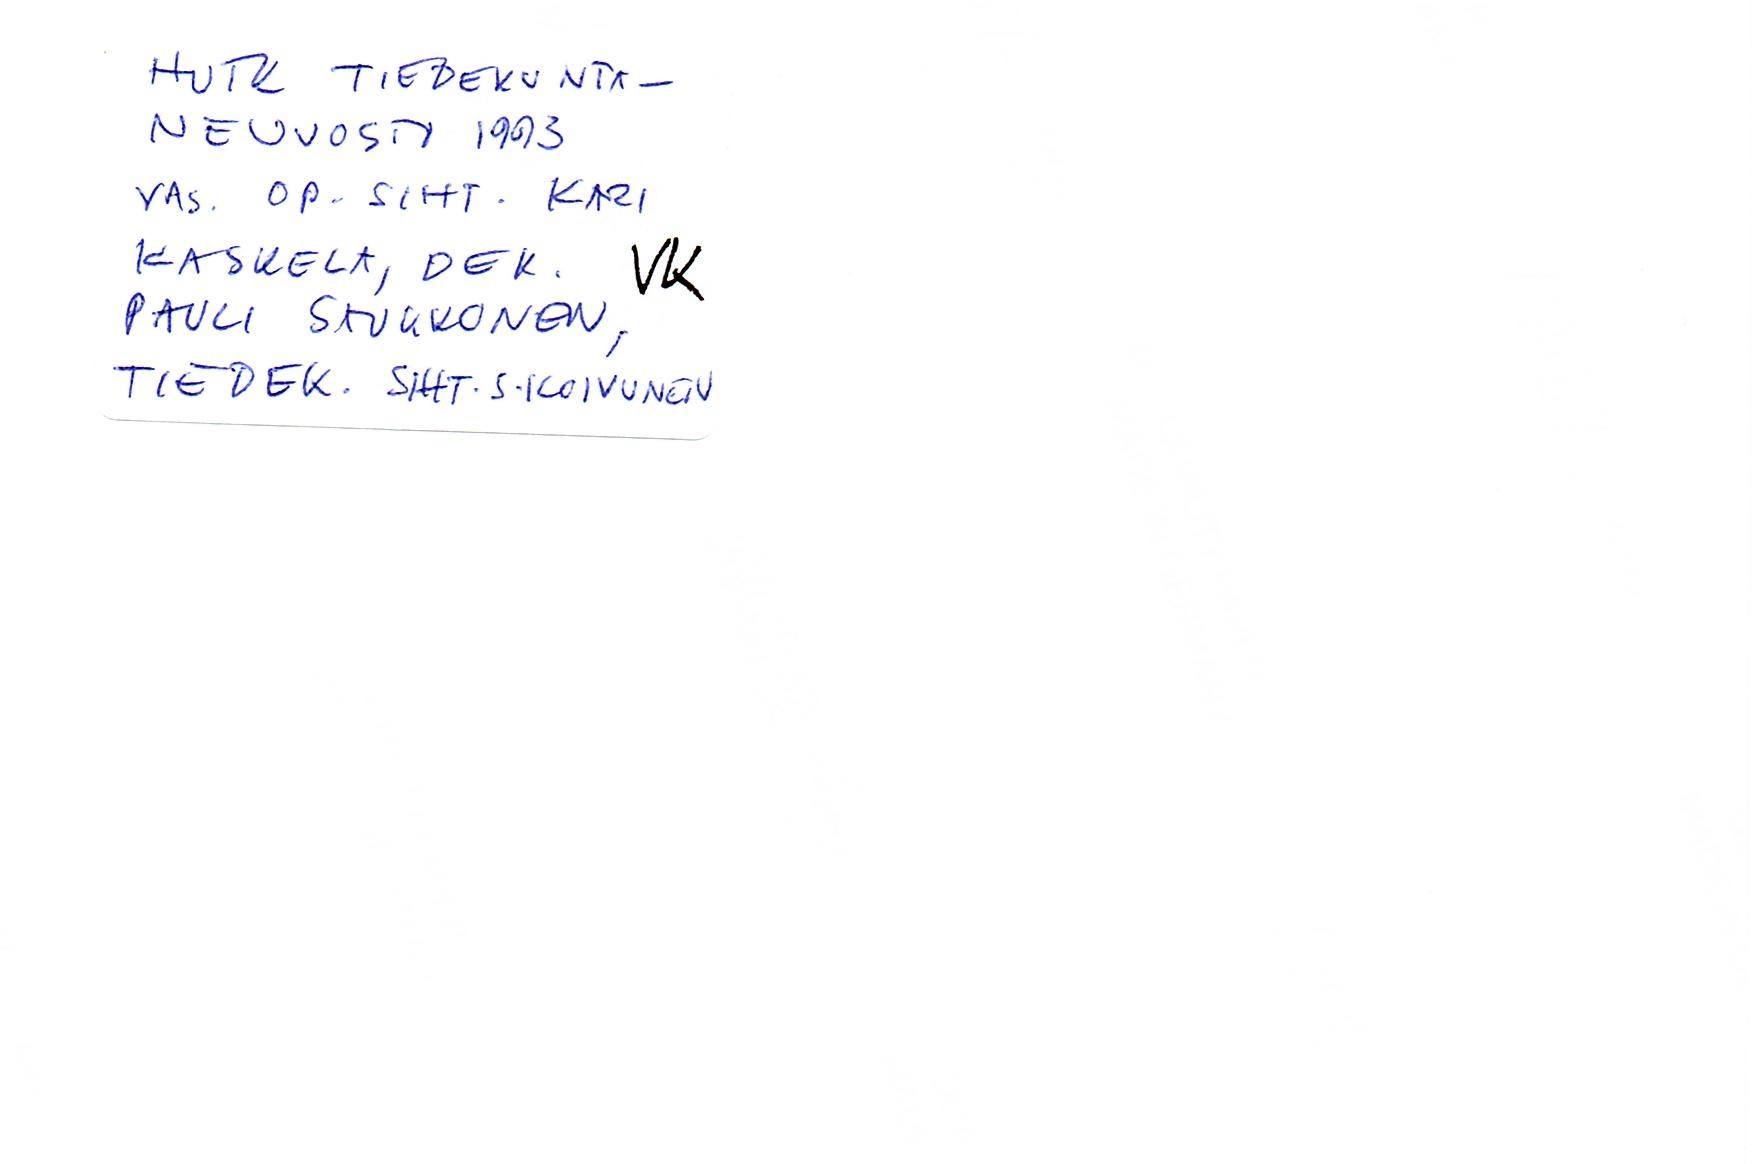 HUTK TIEDEKUNTA-
NEUVOSTO 1993
VAS. OP. SIHT. KARI
KASKELA, DEK. VK
PAULI SAUKKONEN,
TIEDEK. SIHT. S. KOIVUNEN